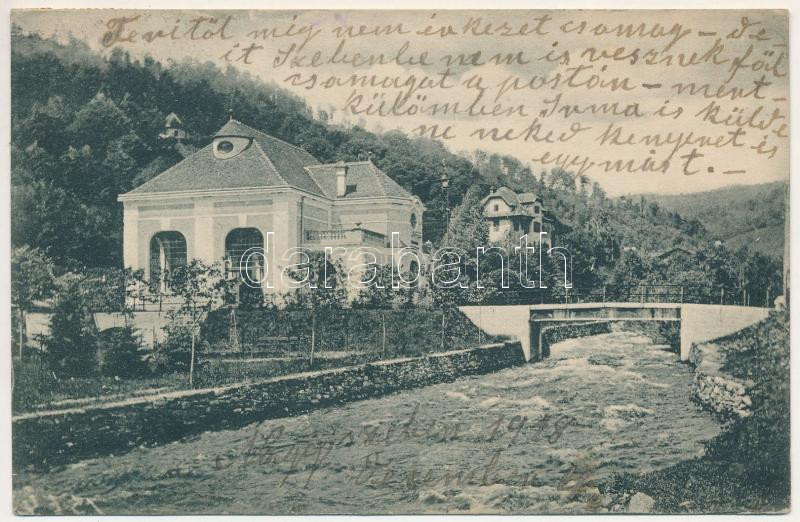 Tevitöl még nem évkezet csomag – de
it Szebenbe nem is vesznek föl
csomagot a postán – ment-
külömben Irma is külde
ne neked kenyeret és
egymást. –
darabanth
1918